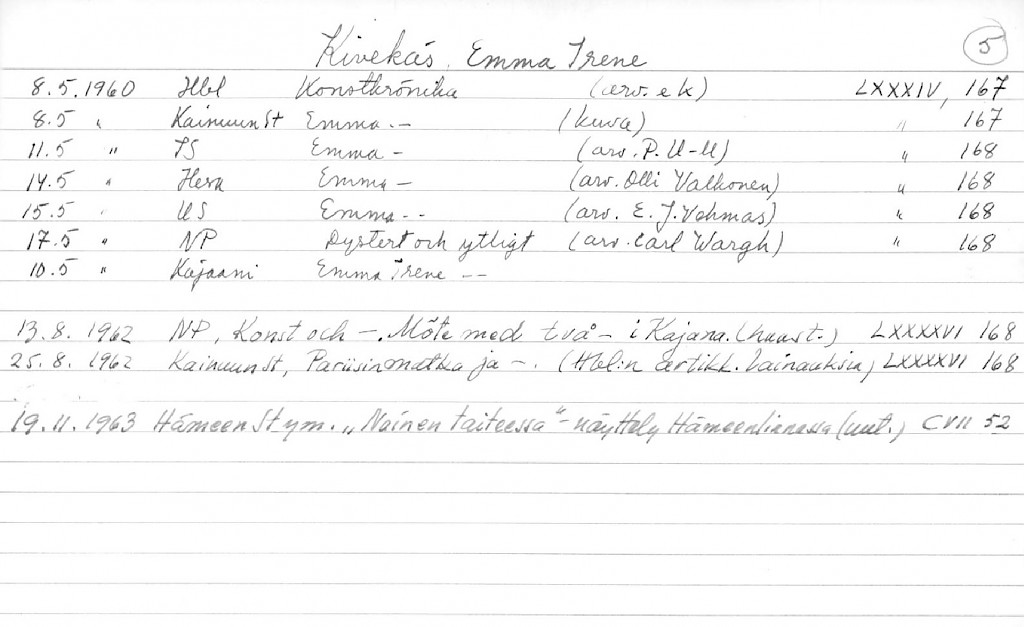 Kivekäs, Emma Irene 5
8.5.1960 Hbl Konstkrönika (arv. e k) LXXXIV, 167
8.5 " Kainuun St Emma.- (kuva) " 167
11.5 " TS Emma - (arv. P. U-U) " 168
14.5 " Hesa Emma - (arv. Olli Valkonen) " 168
15.5 " US Emma -- (arv. E. J. Vehmas) " 168
17.5 " NP Dystert och ytligt (arv. Carl Wargh) " 168
10.5 " Kajaani Emma Irene --
13.8. 1962 NP, Konst och -. Möte med två - i Kajana. (haast.) LXXXXVI 168
25.8. 1962 Kainuun St, Pariisin matka ja -. (Hbl:n artikk. lainauksia) LXXXXVI 168
19.11.1963 Hämeen St ym. "Nainen taiteessa" - näyttely Hämeenlinnassa (uut.) CVII 52